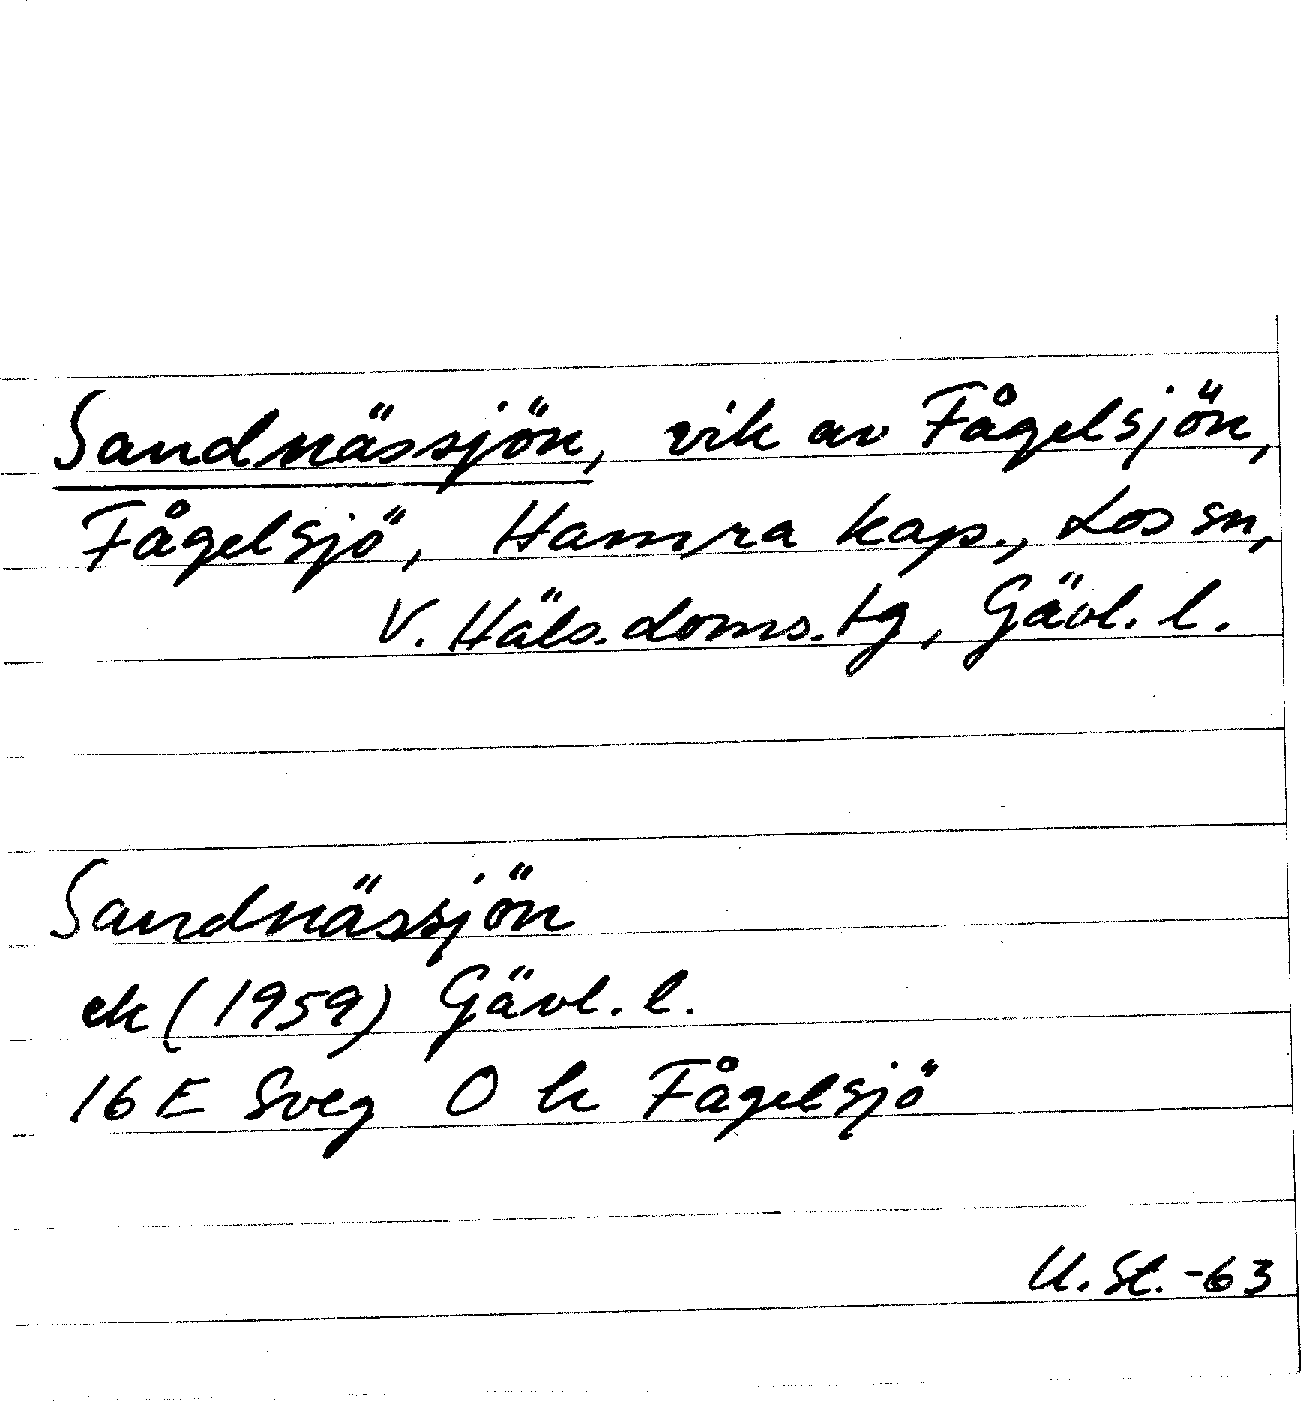 Sandnässjön, vik av Fågelsjön,
Fågelsjö, Hamra kap., Los sn,
V. Häls. doms. tg, Gävl. l.
Sandnässjön
ek (1959) Gävl. l.
16 E Sveg O k Fågelsjö
U. St. -63